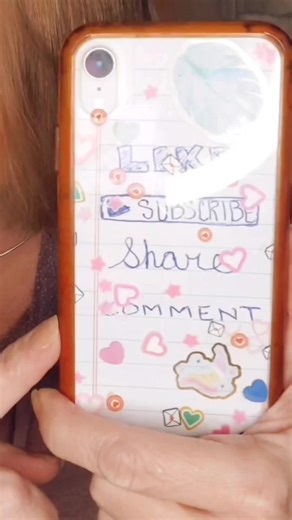 LIKE
SUBSCRIBE
Share
COMMENT